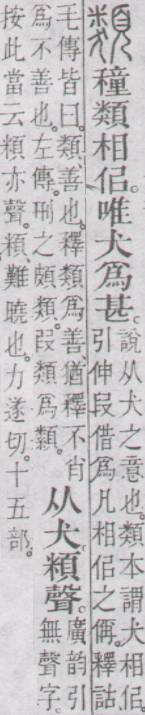 類
穜類相佀。唯犬爲甚。
說从犬之意也。類本謂犬相佀。
引伸叚借爲凡相佀之偁。釋詁
毛傳皆曰。類、善也。釋類爲善、猶釋不肖
爲不善也。左傳。刑之頗類。叚類爲纇。
从犬。頪聲。
廣韵引
無聲字。
按此當云頪亦聲。頪難曉也。力遂切。十五部。